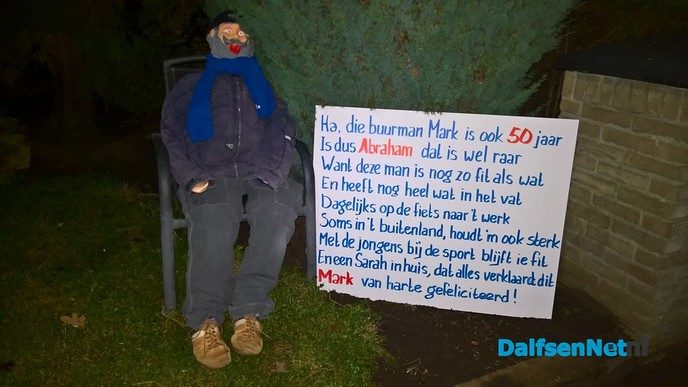 Ha, die buurman Mark is ook 50 jaar
Is dus Abraham dat is wel raar
Want deze man is nog zo fit als wat
En heeft nog heel wat in het vat
Dagelijks op de fiets naar 't werk
Soms in 't buitenland, houdt 'm ook sterk
Met de jongens bij de sport blijft ie fit
En een Sarah in huis, dat alles verklaard dit
Mark van harte gefeliciteerd!
DalfsenNet.nl